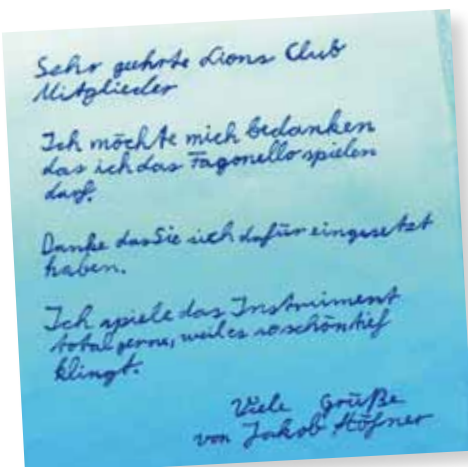 Sehr geehrte Lions Club
Mitglieder
Ich möchte mich bedanken
das ich das Fagonello spielen
darf.
Danke das Sie sich dafür eingesetzt
haben.
Ich spiele das Instrument
total gerne, weil es so schön tief
klingt.
Viele Grüße
von Jakob Höfner